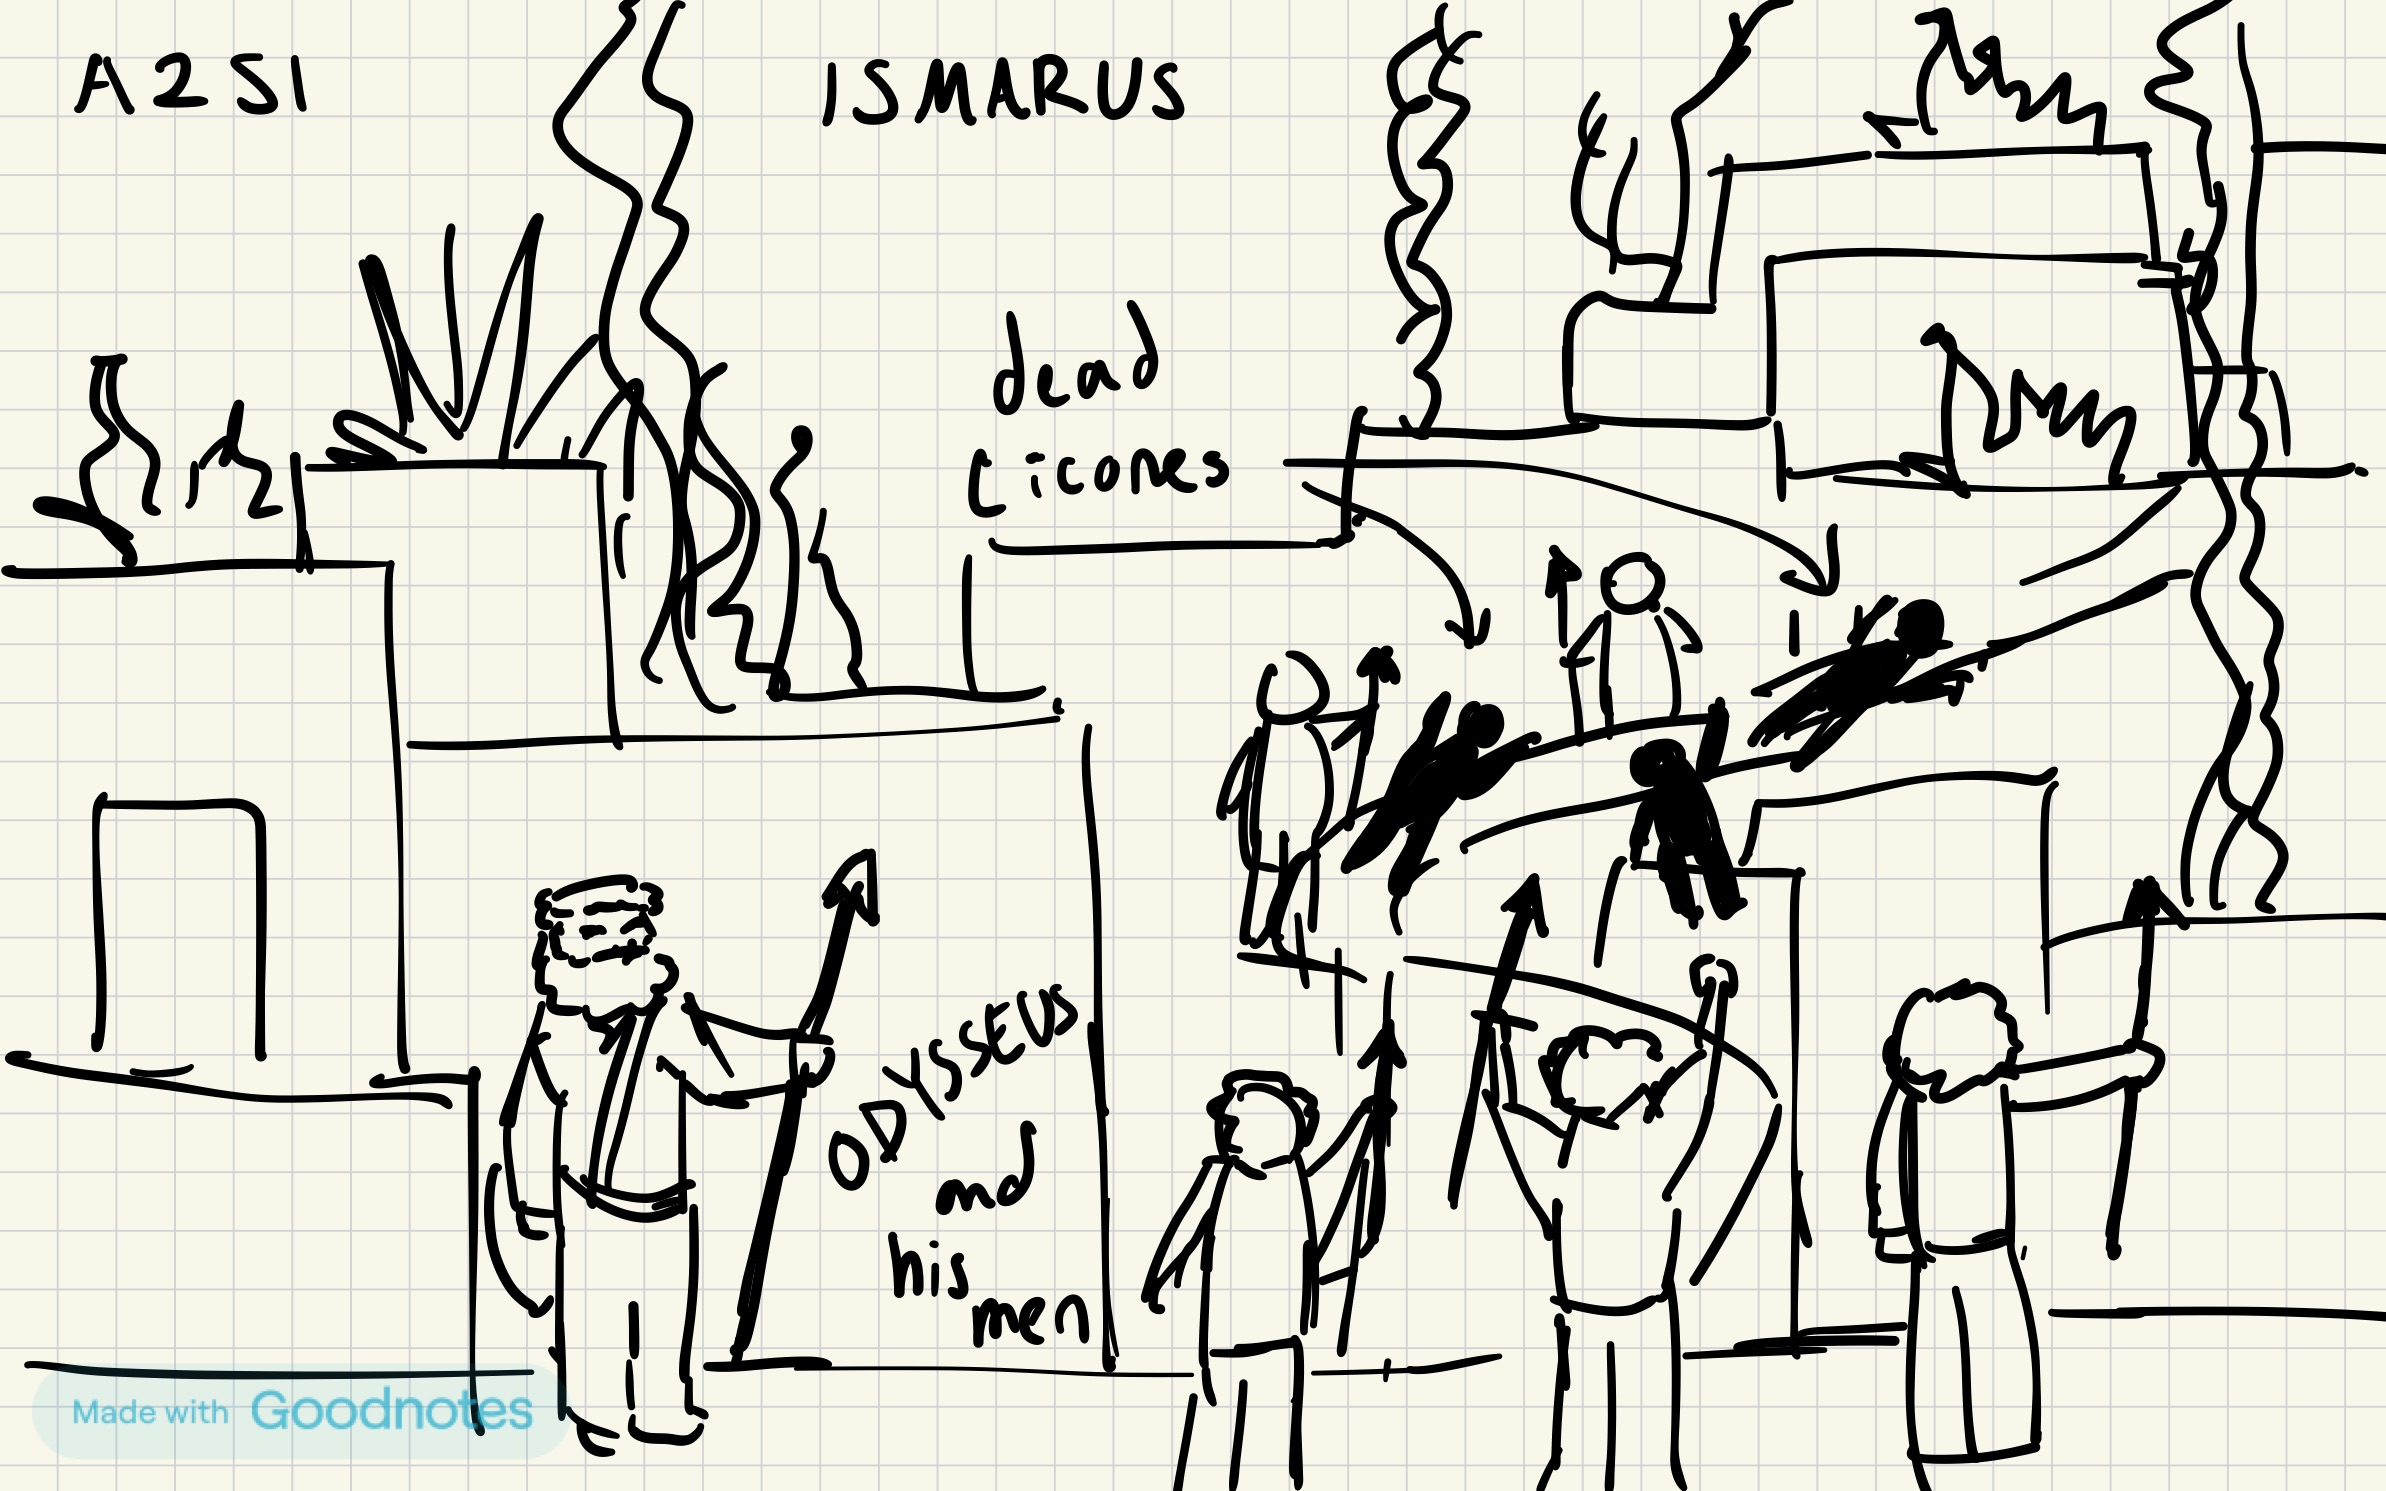 A2S1
ISMARUS
dead
Cicones
ODYSSEUS
and
his
men
Made with Goodnotes